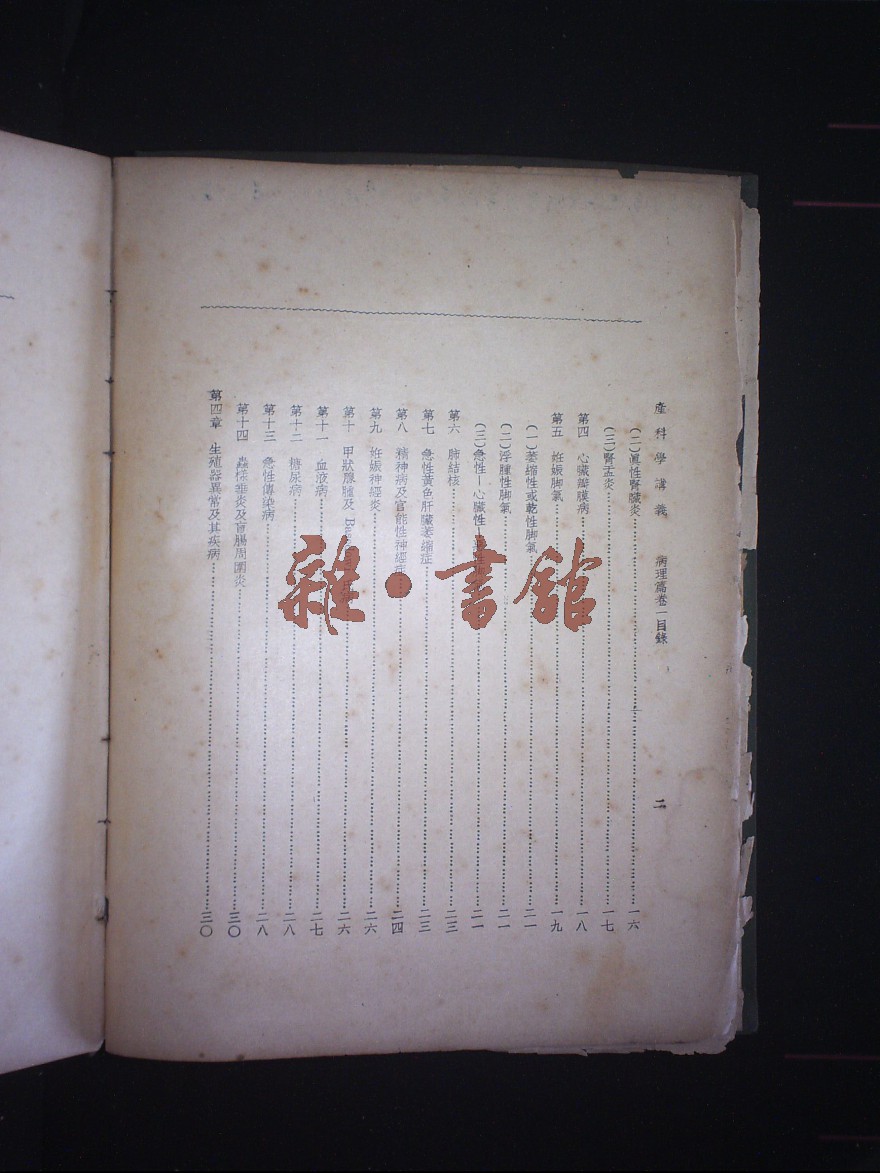 產科學講義 病理篇卷一目錄 二
(二)眞性腎臟炎 一六
(三)腎盂炎 一七
第四 心臟瓣膜病 一八
第五 妊娠脚氣 一九
(一)萎縮性或乾性脚氣 二一
(二)浮腫性脚氣 二一
(三)急性—心臟性— 二一
第六 肺結核 二三
第七 急性黃色肝臟萎縮症 二三
第八 精神病及官能性神經症 二四
第九 妊娠神經炎 二六
第十 甲狀腺腫及 二六
第十一 血液病 二七
第十二 糖尿病 二八
第十三 急性傳染病 二八
第十四 蟲樣垂炎及盲腸周圍炎 三〇
第四章 生殖器異常及其疾病 三〇
雜·書館